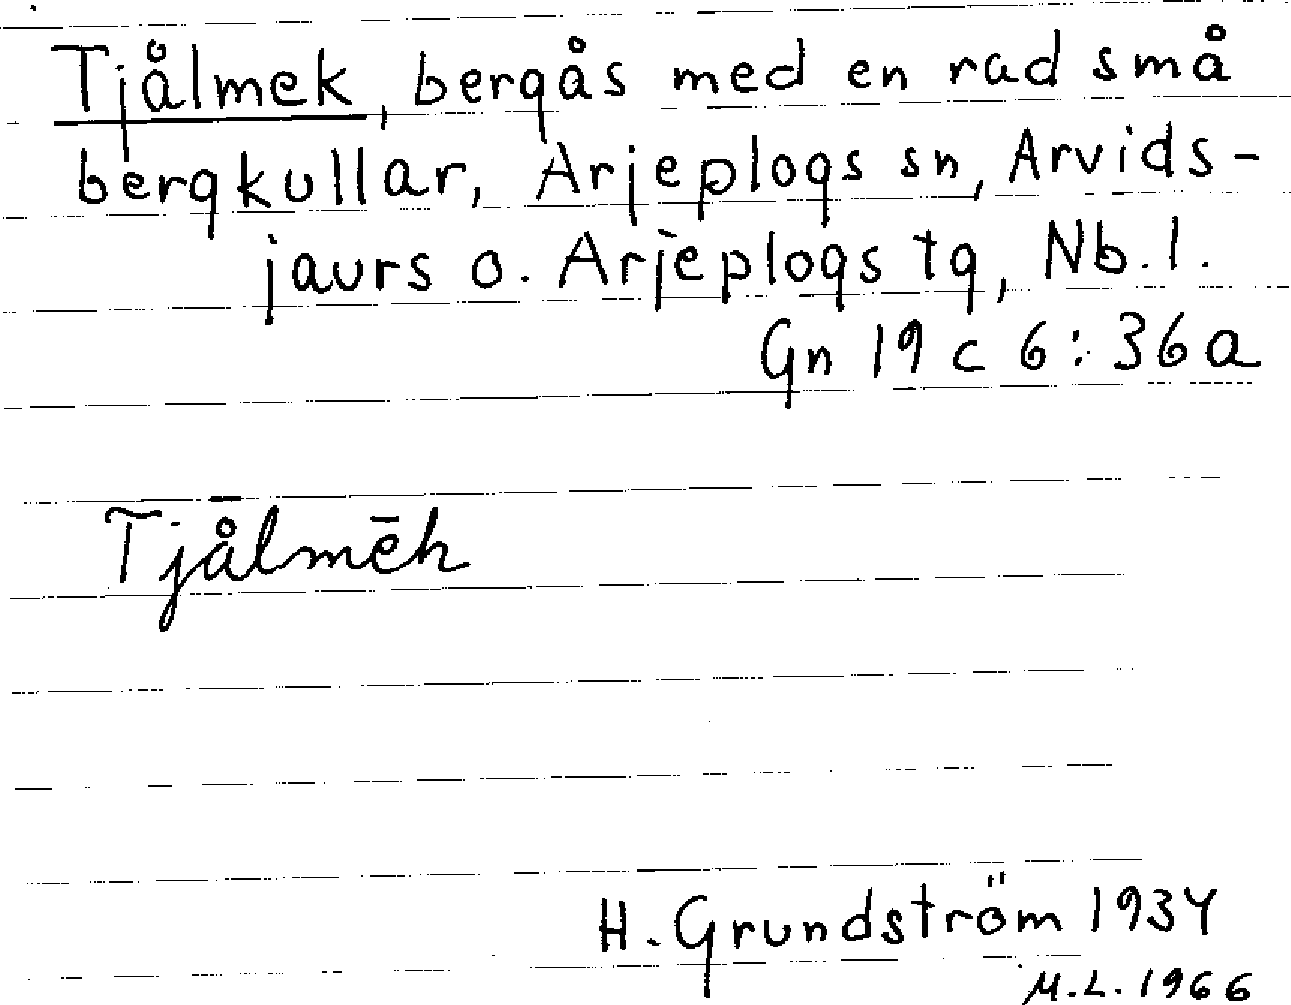 Tjålmek, bergås med en rad små
bergkullar, Arjeplogs sn, Arvids-
jaurs o. Arjeplogs tg, Nb. l.
Gn 19 c 6: 36a
Tjålmēk
H. Grundström 1934
M.L. 1966